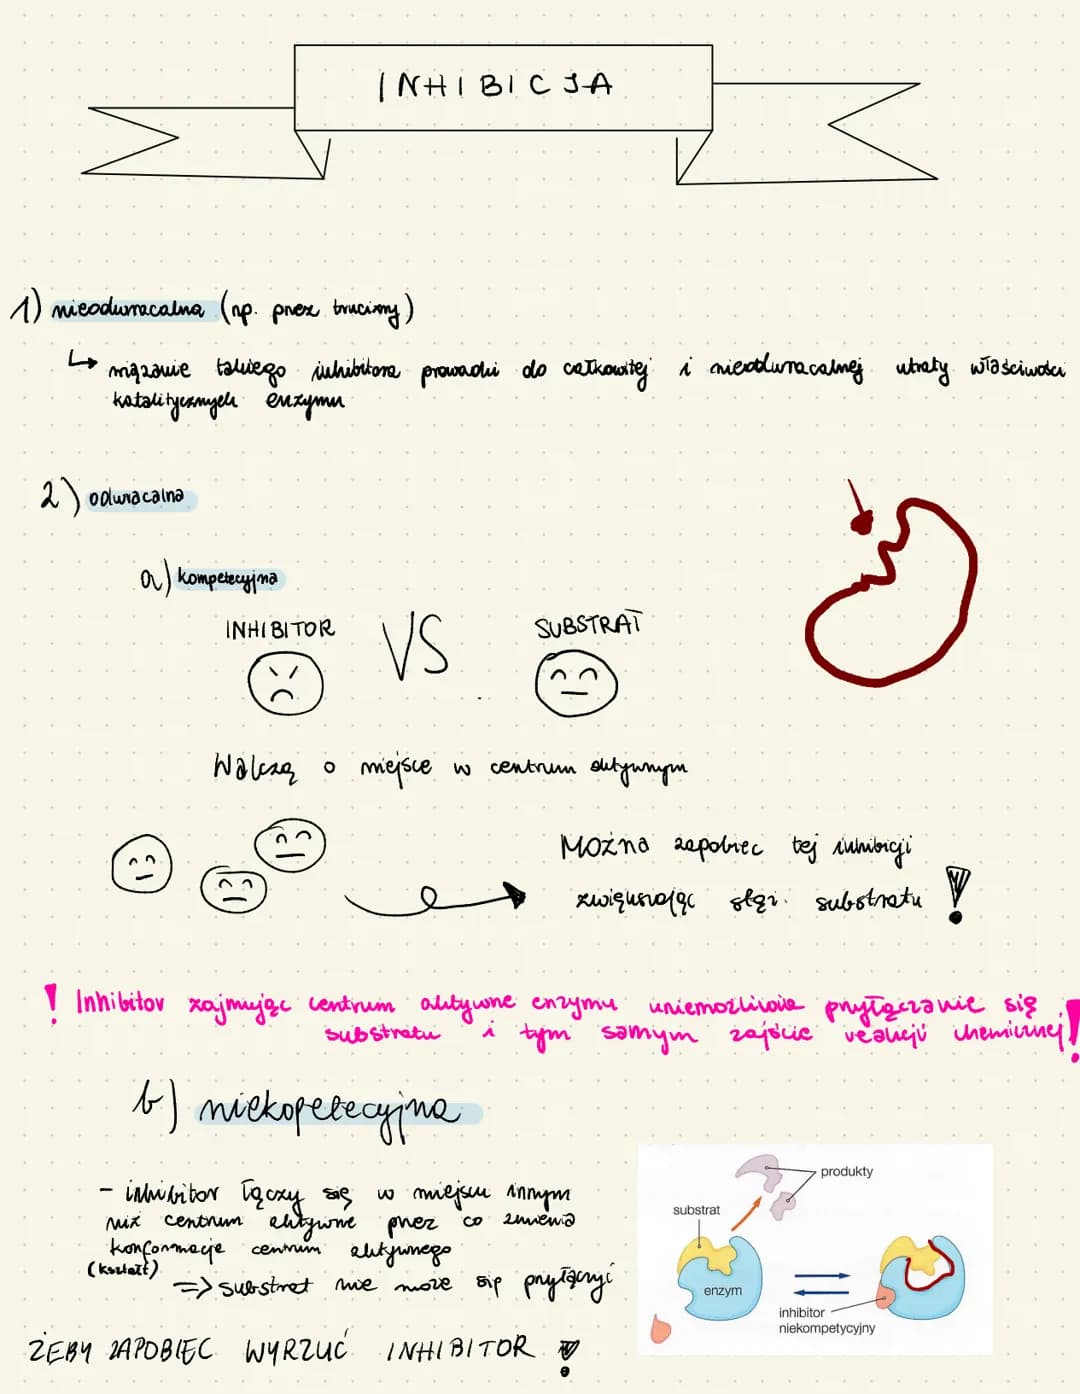 INHIBICJA
1) nieodwracalna (np. przez trucizny)
↳ wiązanie takiego inhibitora prowadzi do całkowitej i nieodwracalnej utraty właściwości
katalitycznych enzymu
2) odwracalna
a) kompetecyjna
INHIBITOR VS SUBSTRAT
Walczą o miejsce w centrum aktywnym
Można zapobiec tej inhibicji
zwiększając stęż. substratu !
! Inhibitor zajmując centrum aktywne enzymu uniemożliwia przyłączanie się
substratu i tym samym zajście reakcji chemicznej!
b) niekopetecyjna
- inhibitor łączy się w miejscu innym
niż centrum aktywne przez co zmienia
konformacje centrum aktywnego
(kształt)
=> substrat nie może się przyłączyć
ŻEBY ZAPOBIEC WYRZUĆ INHIBITOR !
produkty
substrat
enzym
inhibitor
niekompetycyjny